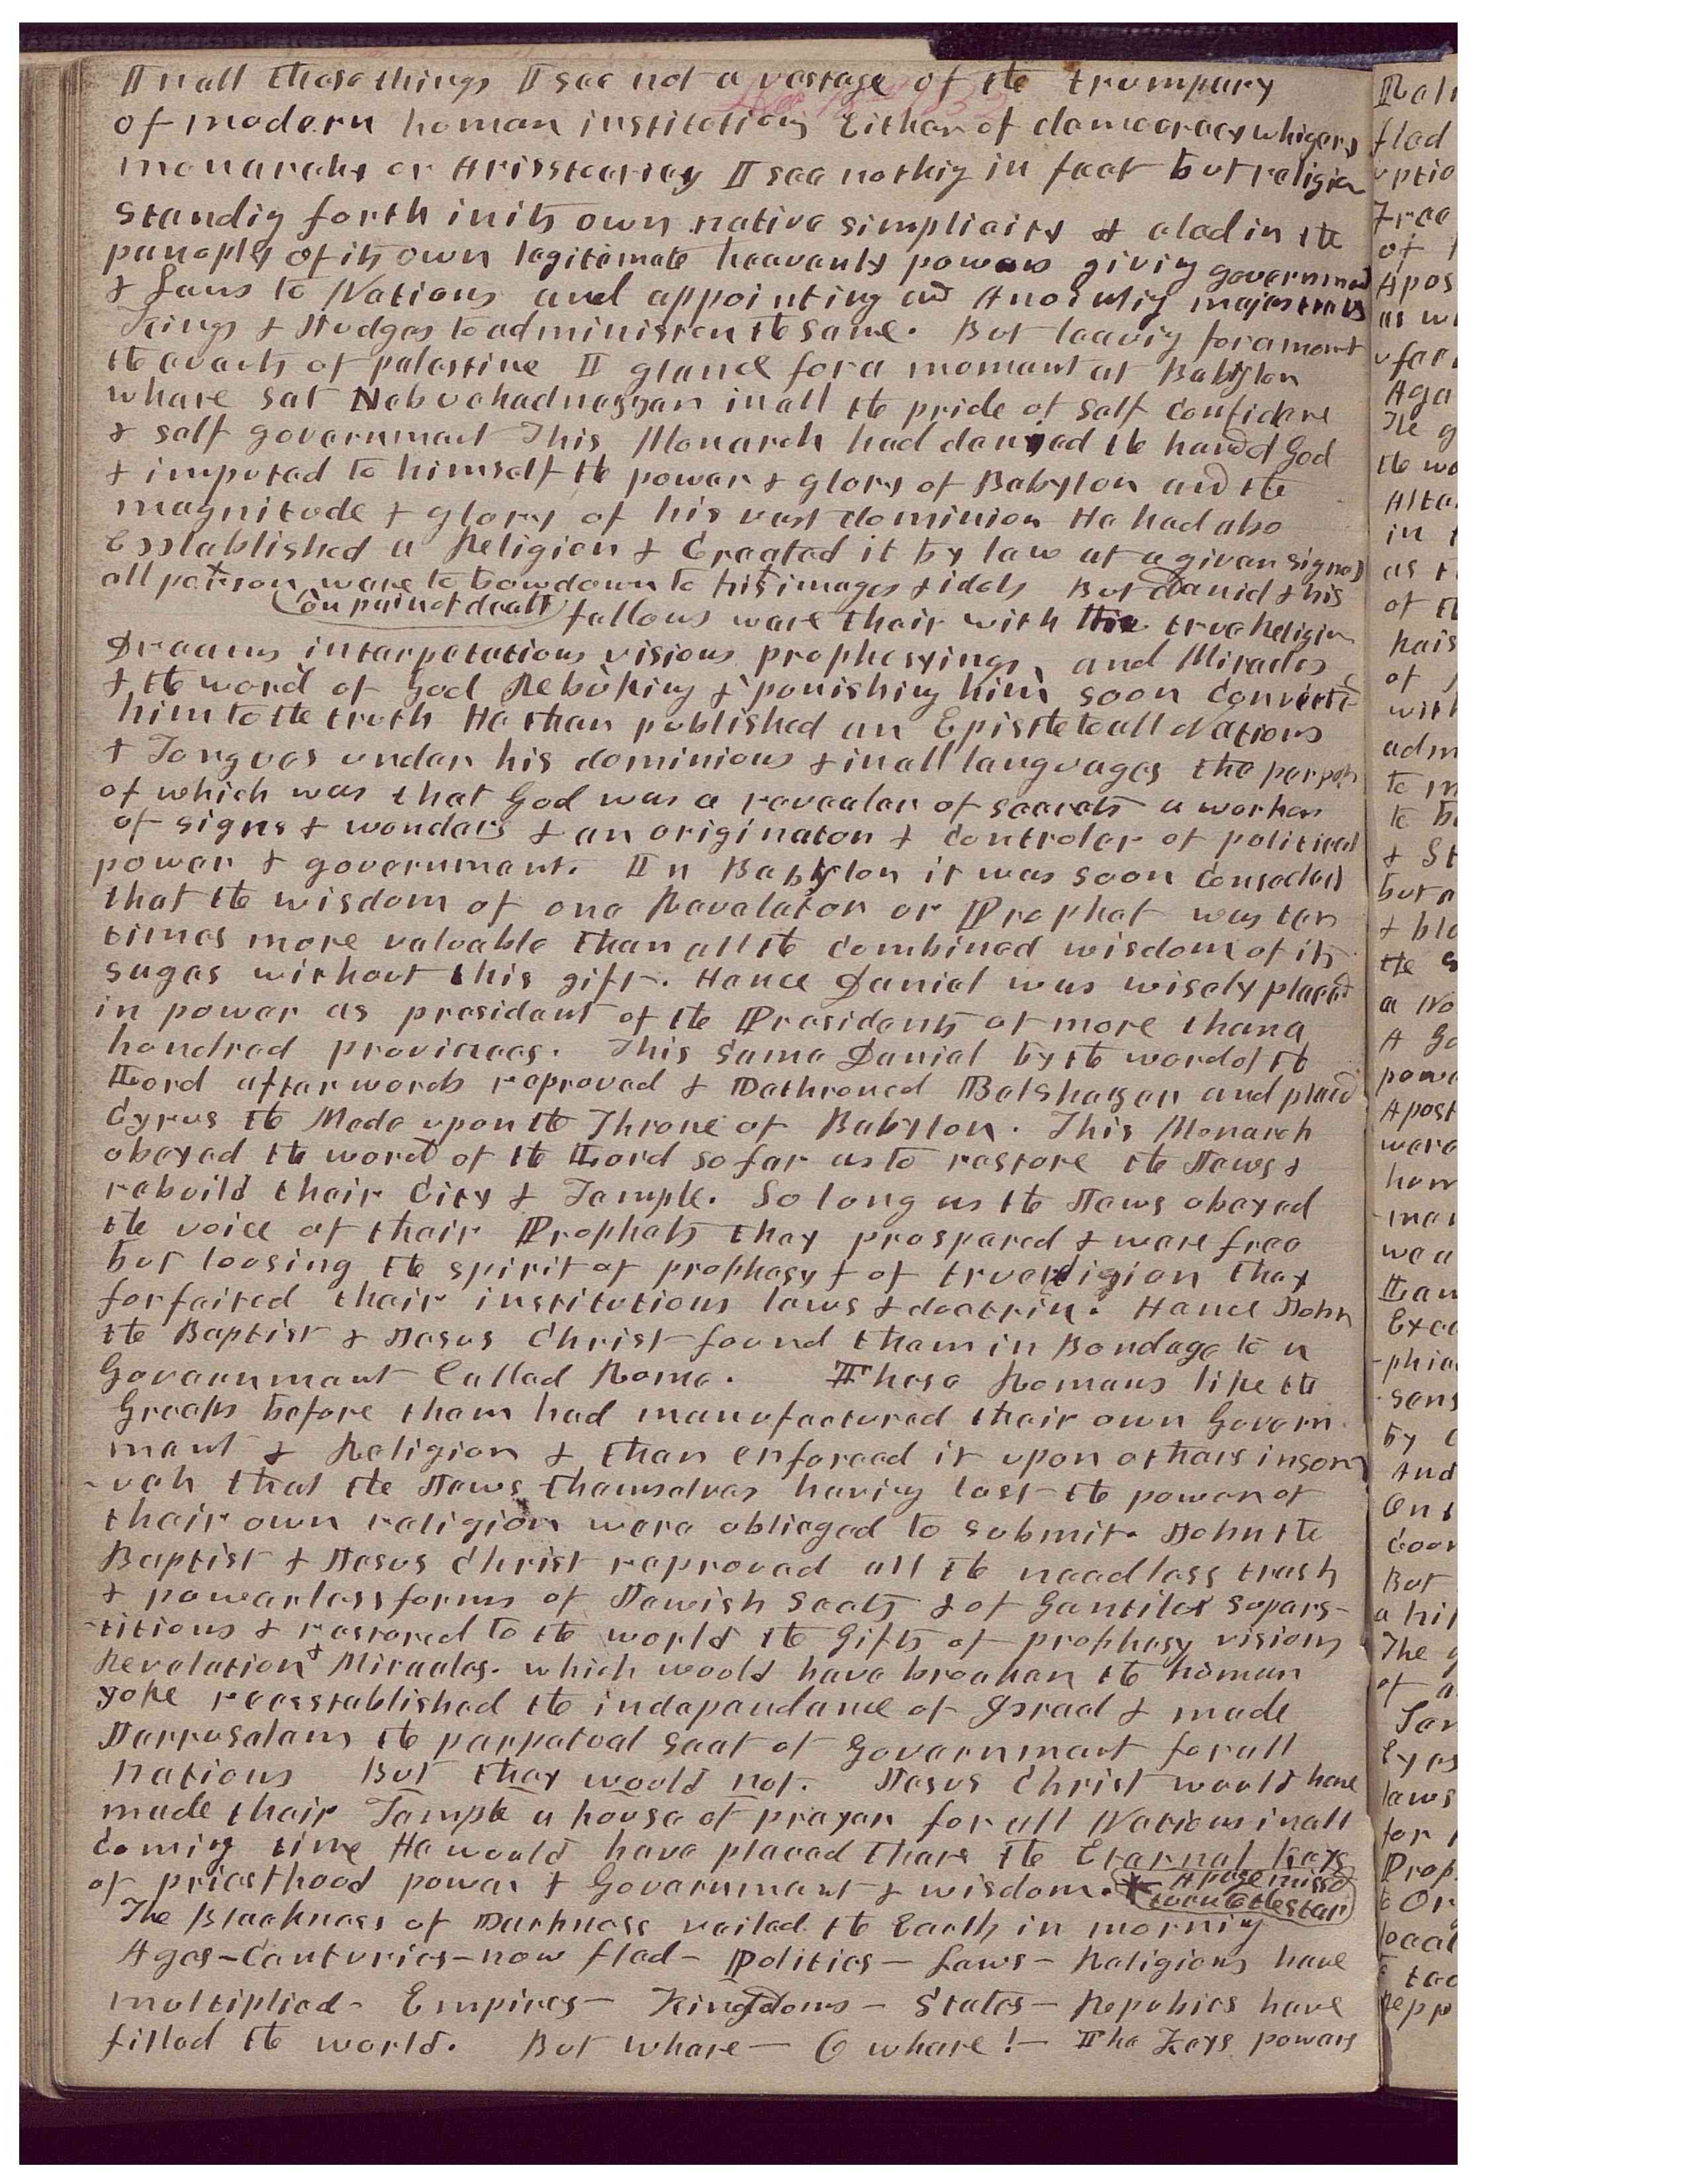 In all these things I see not a vestage of the trumpury
of modern human institutions Either of democracy whigery
monarchy or Arisstocricy I see nothig in fact but religion
standig forth in its own native simplicity & clad in the
panoply of its own legitemate heavenly powers givig government
& Laws to Nations and appointing and Anointig majestrats
Kings & Judges to administer the same. But leavig for a moment
the courts of palestine I glance for a moment at Babylon
whare sat Nebuchadnezzar in all the pride of self confidence
& self government This Monarch had denied the hand of God
& imputed to himself the power & glory of Babylon and the
magnitude & glory of his vast dominion He had also
Esstablished a Religion & Creeted it by law at a given signal
all person ware to bow down to his images & idols But Daniel & his
(on pain of death) fellows ware their with the true Religion
Dreams interpetations visions prophesyings, and Miracles
& the word of God Rebuking & punishing him soon converted
him to the truth He then published an Epistle to all Nations
& Tongues under his dominions & in all languages the perport
of which was that God was a reveealer of secrets a worker
of signs & wonders & an originator & controler of political
power & government. In Babylon it was soon conseded
that the wisdom of one Revelator or Prophet was ten
times more valuable than all the combined wisdom of its
sages without this gift. Hence Daniel was wisely placed
in power as president of the Presidents of more than a
hundred provinces. This same Daniel by the word of the
Lord afterwords reproved & Dethroned Belshazer and placed
Cyrus the Mede upon the Throne of Babylon. This Monarch
obeyed the word of the Lord so far as to restore the Jews &
rebuild their City & Temple. So long as the Jews obeyed
the voice of their Prophets they prospered & ware free
but loosing the spirit of prophesy & of true religion they
forfeited their institutions laws & doctrin. Hence John
the Baptist & Jesus Christ found them in Bondage to a
Goverrnment Called Rome. These Romans like the
Greeks before them had manufactured their own Govern
ment & Religion & then enforced it upon others insom
-uch that the Jews themselves having lost the power of
their own religion were oblieged to submit. John the
Baptist & Jesus Christ reproved all the needless trash
& powerless forms of Jewish Seats & of Gentiles supers-
-titions & restored to the world the Gifts of prophesy visions
Revelation & Miracles. which would have broaken the human
yoke reesstablished the independance of Israel & made
Jerrusalem the perpetual seat of Government for all
nations But they would not. Jesus Christ would have
made their Temple a house of prayer for all Nations in all
coming time He would have placed there the Eternal keys
of priesthood power & Government & wisdom. * A page missed
turn to the star
The Blackness of Darkness vailed the Earth in mornig
Ages-Centuries-now fled- Politics- Laws- Religions have
multiplied- Empires- Kingdoms- States- Repubics have
filled the world. But whare- O whare!- The Keys powers